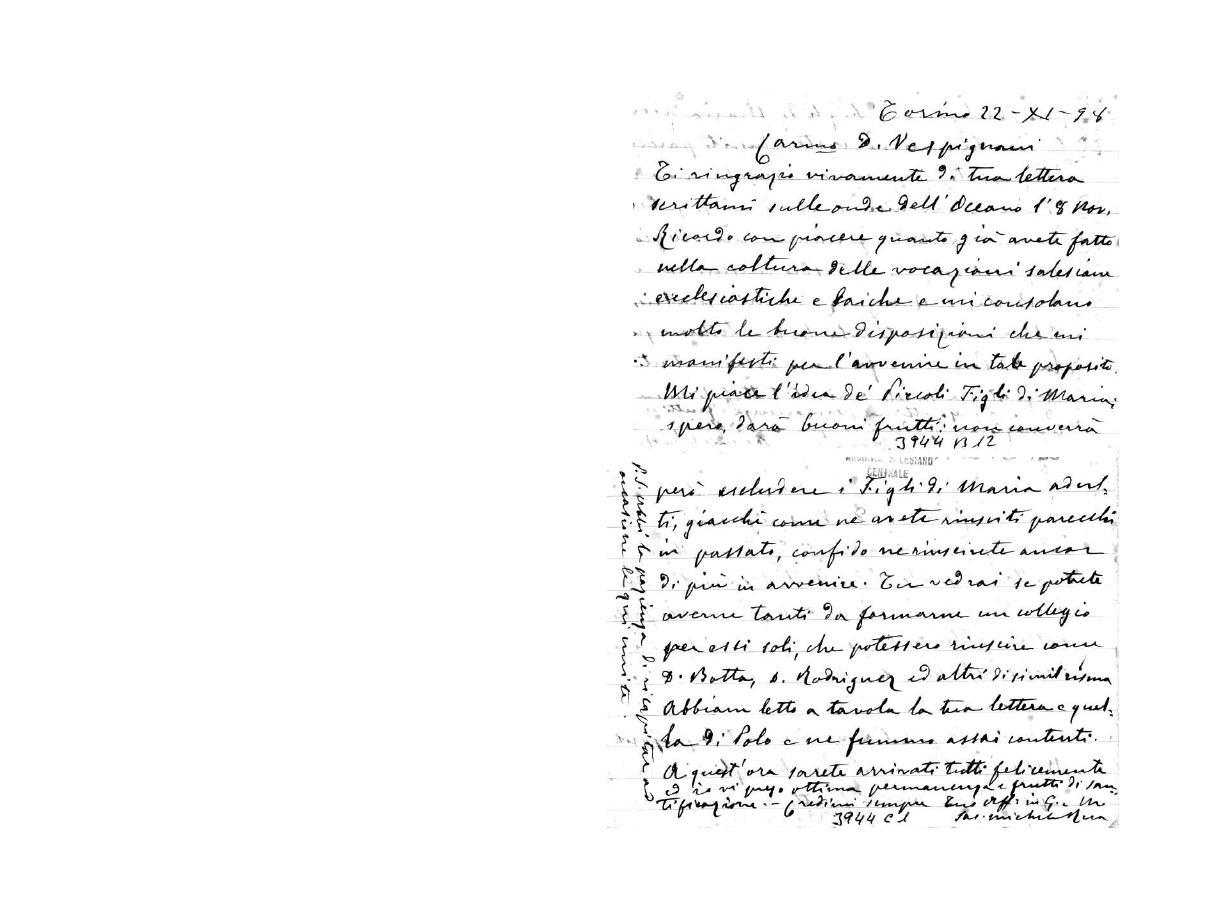 Torino 22-XI-98
Carmo D. Vespignani
Ti ringrazio vivamente di tua lettera
scrittami sulle onde dell'Oceano l'8 Nov.
Ricordo con piacere quanto già avete fatto
nella coltura delle vocazioni salesiane
ecclesiastiche e laiche e mi consolano
molto le buone disposizioni che mi
manifesti per l'avvenire in tale proposito.
Mi piace l'idea de' Piccoli Figli di Maria;
spero, darà buoni frutti: non converrà
3944 B 12
ARCHIVIO SALESIANO
CENTRALE
però escludere i Figli di Maria adul-
ti, giacchè come ne avete riusciti parecchi
in passato, confido ne riuscirete ancor
di più in avvenire. Tu vedrai se potrete
averne tanti da formarne un collegio
per essi soli, che potessero riuscire come
D. Botta, D. Rodriguez ed altri di simil risma
Abbiam letto a tavola la tua lettera e quel-
la di Polo e ne fummo assai contenti.
A quest'ora sarete arrivati tutti felicemente
ed io vi prego ottima permanenza e frutti di san-
tificazione. - Credimi sempre Tuo aff. in G. e M.
3944 C 1 Sac. Michele Rua
P.S. abbi la pazienza di ricapitar ad
occasione le qui unite.